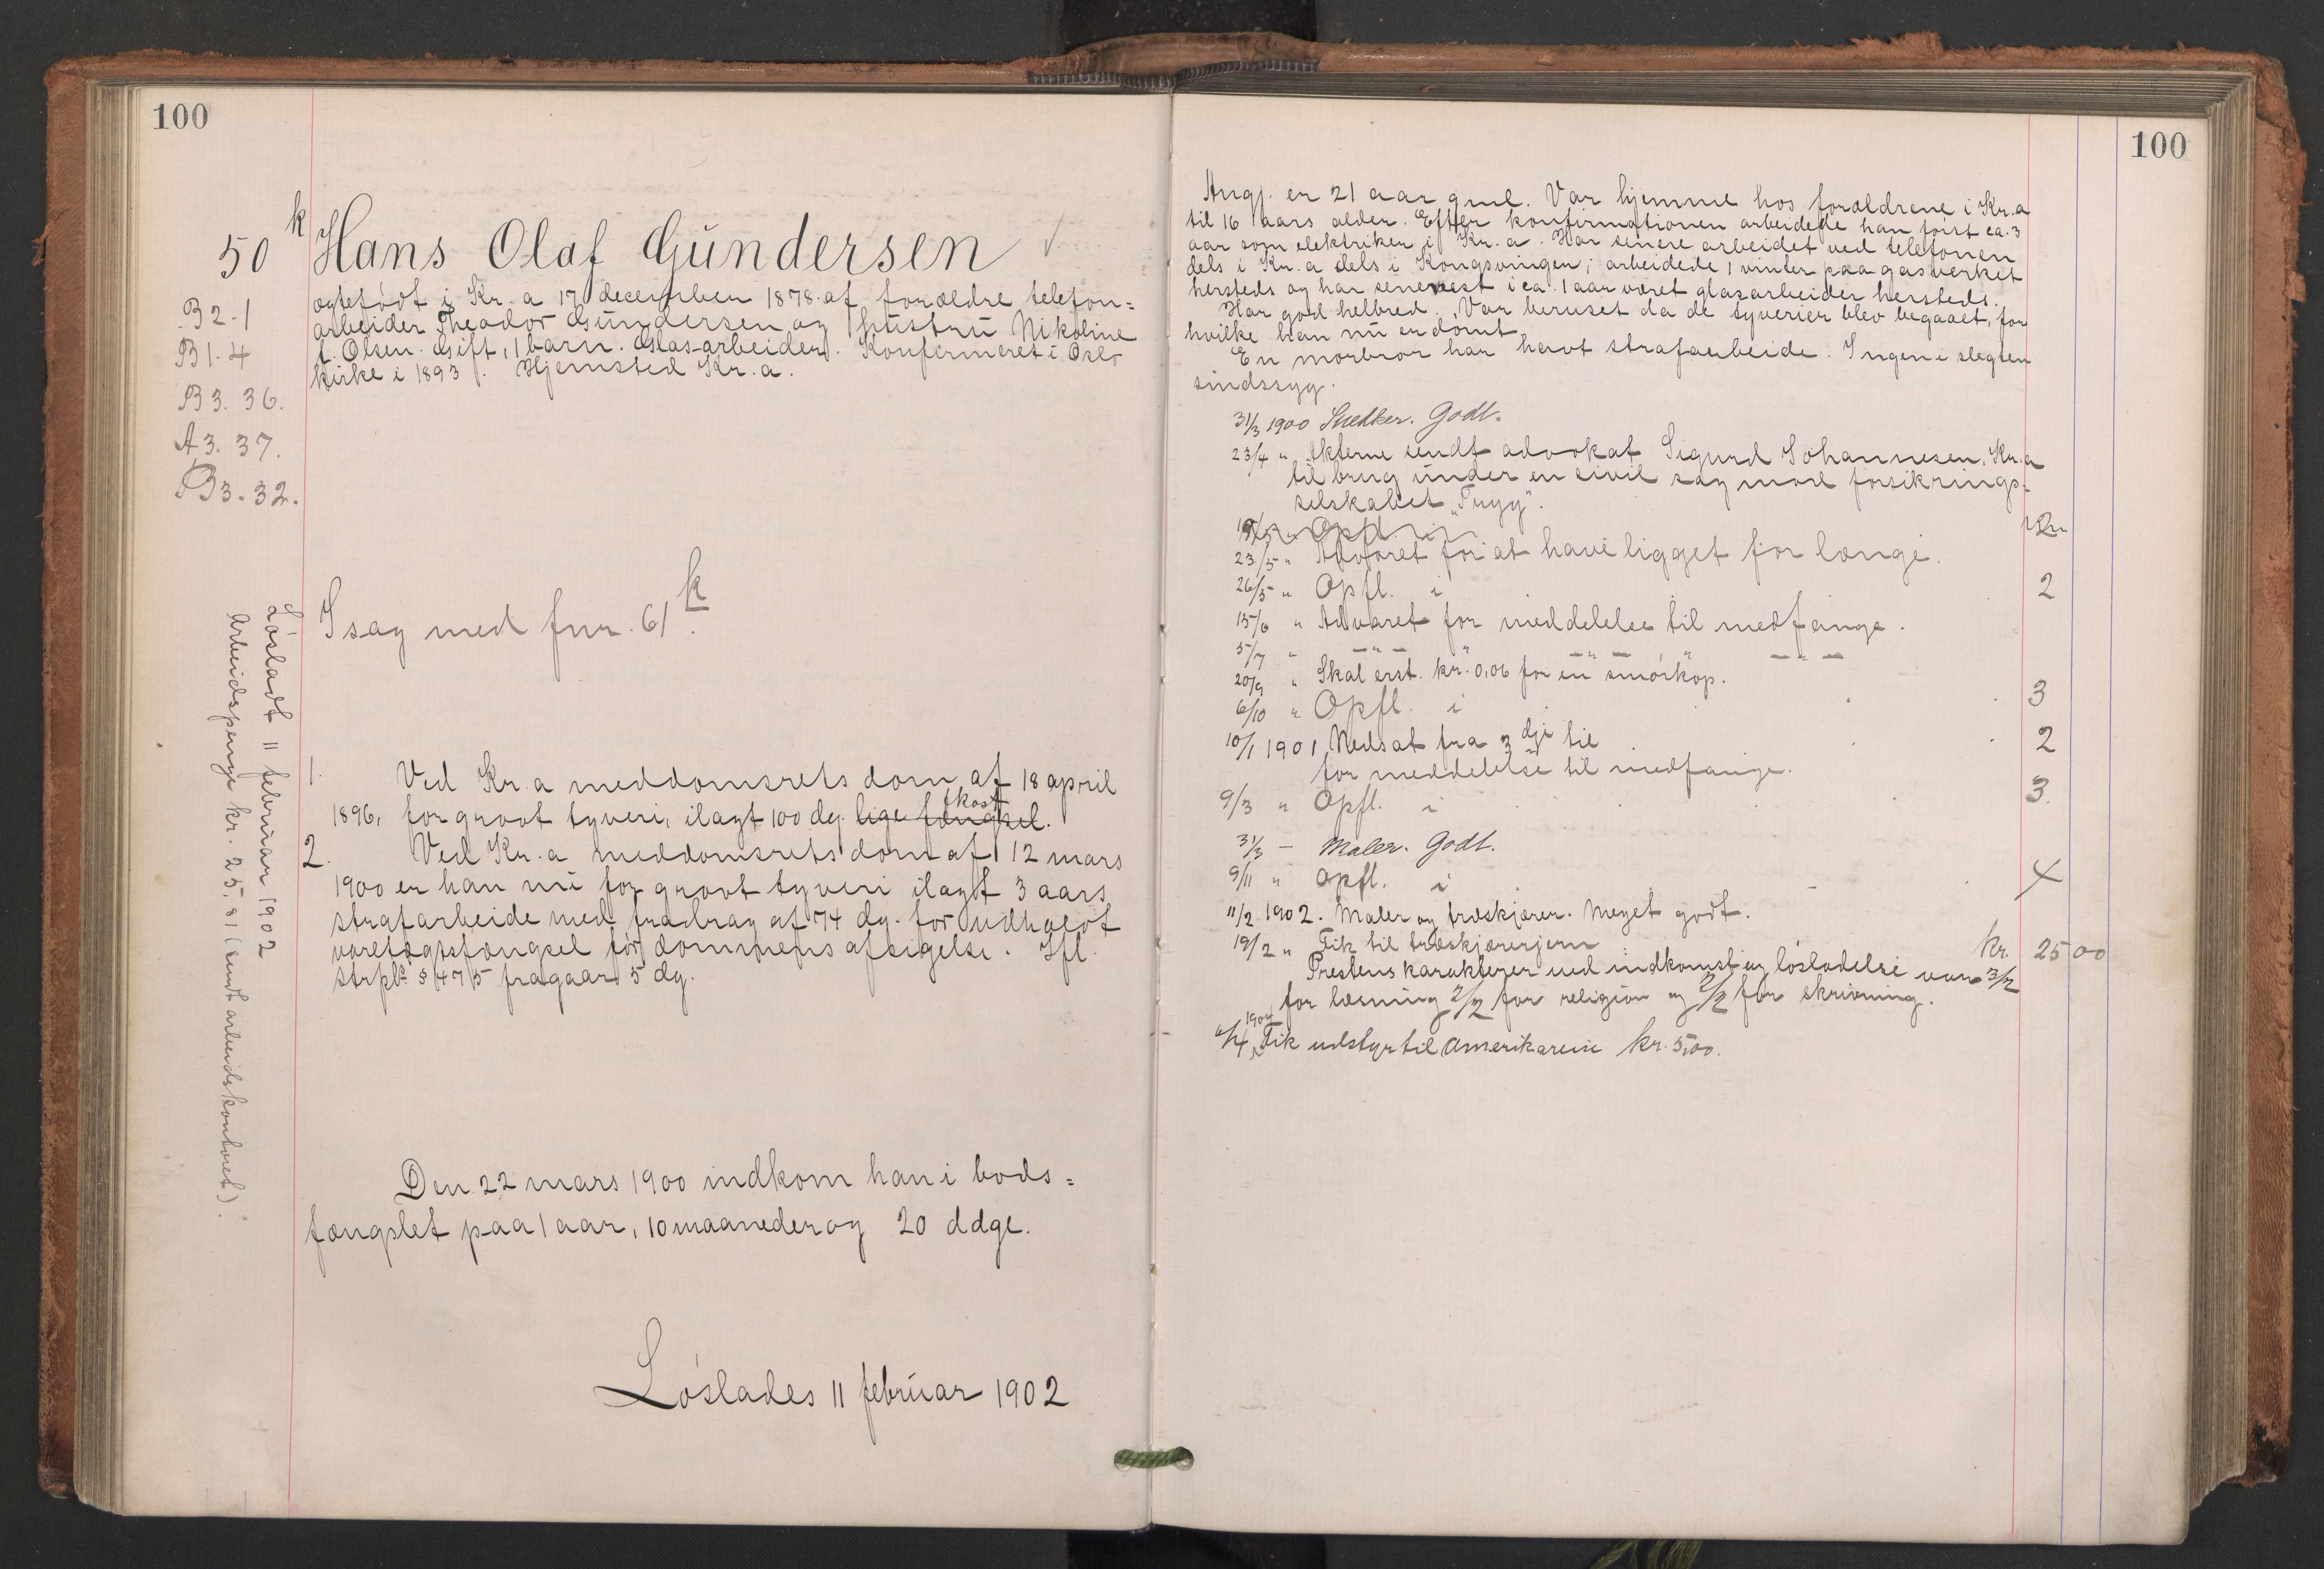 100
50 k
Hans Olaf Gundersen
B2.1
B1.4
B3.36.
A3.37.
B3.32.
ægtefødt i Kr.a 17 december 1878 af forældre telefon=
arbeider Theodor Gundersen og hustru Nikoline
f. Olsen. Gift, 1 barn. Glasarbeider. Konfermeret i Oslo
kirke i 1893. Hjemsted Kr.a.
I sag med fnr. 61 k.
Løsladt 11 februar 1902
Arbeidspenge kr. 25,81 (sendt arbeidskontoret).
1. Ved Kr.a meddomsrets dom af 18 april
1896, for grovt tyveri, ilagt 100 dg. lige fængsel. kost
2. Ved Kr.a meddomsrets dom af 12 mars
1900 er han nu for grovt tyveri ilagt 3 aars
strafarbeide med fradrag af 74 dg. for udholdt
varetægtsfængsel før dommens afsigelse. Ifl.
strpl. § 475 fragaar 5 dg.
Den 22 mars 1900 indkom han i bods=
fængslet paa 1 aar, 10 maaneder og 20 ddge.
Løslades 11 februar 1902
100
Angj. er 21 aar gml. Var hjemme hos forældrene i Kr.a
til 16 aars alder. Efter konfirmationen arbeidede han først ca. 3
aar som elektriker i Kr.a. Har senere arbeidet ved telefonen
dels i Kr.a dels i Kongsvinger; arbeidede 1 vinter paa gasverket
hersteds og har senest i ca. 1 aar været glasarbeider hersteds.
Har god helbred. Var beruset da de tyverier blev begaaet, for
hvilke han nu er dømt.
En morbror har havt strafarbeide. Ingen i slegten
sindssyg.
31/3 1900 Snedker. Godt.
23/4 " Akterne sendt advokat Sigurd Johannesen, Kr.a
til brug under en civil sag mod forsikrings=
selskabet "Tryg".
19/5 " Opfl. i 2
23/5 " Advaret for at have ligget for længe.
26/5 " Opfl. i 2
15/6 " Advaret for meddelelse til medfange.
5/7 " — " — " — " — — " —
20/9 " Skal erst. kr. 0,06 for en smørkop.
6/10 " Opfl. i 3
10/1 1901 Nedsat fra 3 dje til 2
for meddelelse til medfange.
9/3 " Opfl. i 3.
31/3 — Maler. Godt.
9/11 " Opfl. i 4
11/2 1902. Maler og træskjærer. Meget godt.
19/2 " Fik til træskjærerjern Kr. 25 00
Prestens karakterer ved indkomst og løsladelse var 3/2
for læsning 2/2 for religion og 2/2 for skrivning.
6/4 1904 Fik udstyr til Amerikareise kr. 5,00.